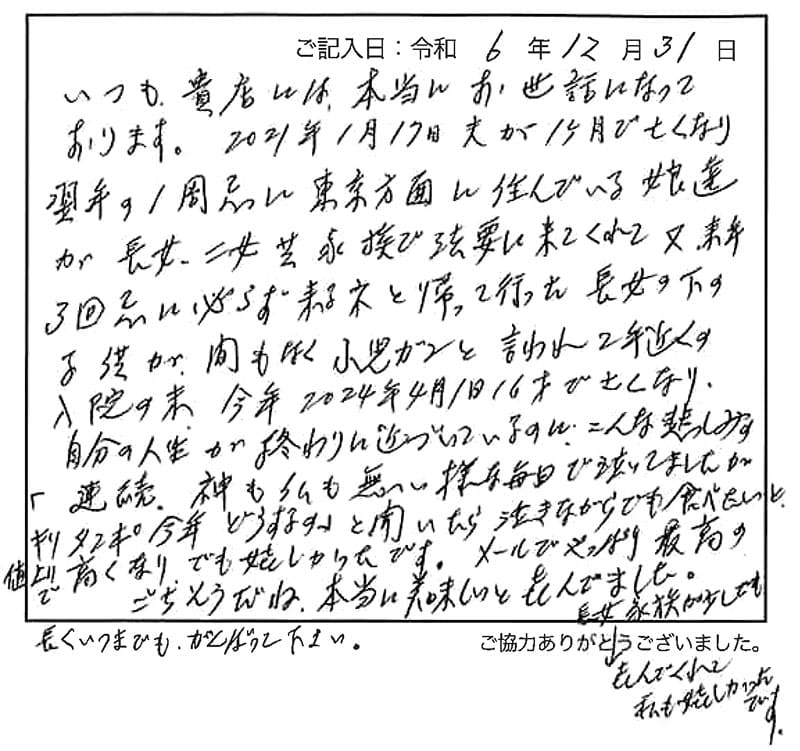 ご記入日：令和 6 年 12 月 31 日
いつも、貴店には、本当にお世話になって
おります。2021年1月17日 夫が1ヶ月で亡くなり
翌年の1周忌に東京方面に住んでいる娘達
が長女、二女共家族で法要に来てくれて又、来年
3回忌に必らず来るネと帰って行った長女の下の
子供が、間もなく小児ガンと言われ2年近くの
入院の末、今年2024年4月1日16才で亡くなり、
自分の人生が終わりに近づいているのに、こんな悲しみの
連続、神も仏も無い様な毎日で泣いてましたが
「キリタンポ今年どうするの」と聞いたら泣きながらでも食べたいと、
値上りで高くなり、でも嬉しかったです。メールでやっぱり最高の
ごちそうだね、本当に美味しいと喜んでました。
長女家族が少しでも
喜んでくれて
私も嬉しかった
です。
長くいつまでも、がんばって下さい。
ご協力ありがとうございました。